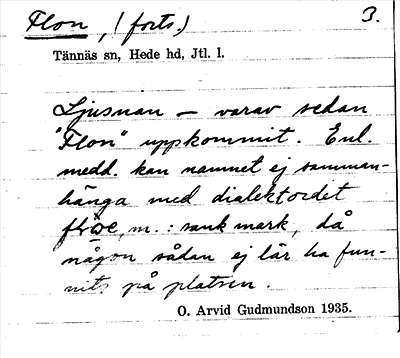 Flon, (forts.) 3.
Tännäs sn, Hede hd, Jtl. l.
Ljusnan – varav sedan
"Flon" uppkommit. Enl.
medd. kan namnet ej samman-
hänga med dialektordet
m.: sank mark, då
någon sådan ej lär ha fun-
nits på platsen.
O. Arvid Gudmundson 1935.